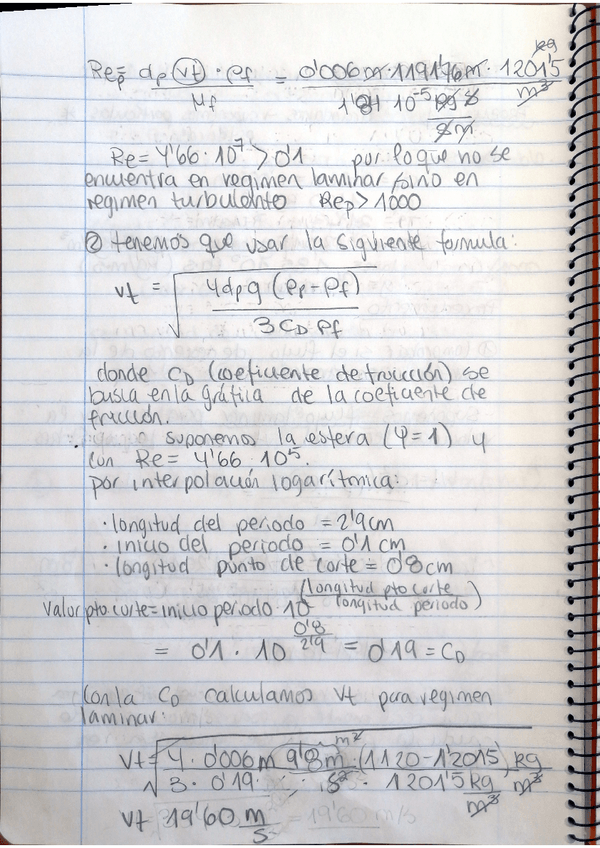 Re_p = dp (vt) · ρf / μf = 0'006 m · 1191'76 m · 1201'5 kg/m³ / 1'81 10⁻⁵ kg s / s m
Re = 4'66 · 10⁷ > 0'1 por lo que no se
encuentra en regimen laminar sino en
regimen turbulento Re_p > 1000
② tenemos que usar la siguiente formula:
vt = √(4 dp g (ρp - ρf) / 3 C_D ρf)
donde C_D (coeficiente de fricción) se
busca en la gráfica de la coeficiente de
fricción.
suponemos la esfera (Ψ=1) y
con Re = 4'66 · 10⁵.
por interpolación logarítmica:
· longitud del periodo = 2'9 cm
· inicio del periodo = 0'1 cm
· longitud punto de corte = 0'8 cm
Valor pto corte = inicio periodo · 10^(longitud pto corte / longitud periodo)
= 0'1 · 10^(0'8/2'9) = 0'19 = C_D
Con la C_D calculamos vt para regimen
laminar:
vt = √(4 · 0'006 m 9'8 m · (1120 - 1'2015) kg/m³ / 3 · 0'19 · s² · 1201'5 kg/m³)
vt 19'60 m/s = 19'60 m/s